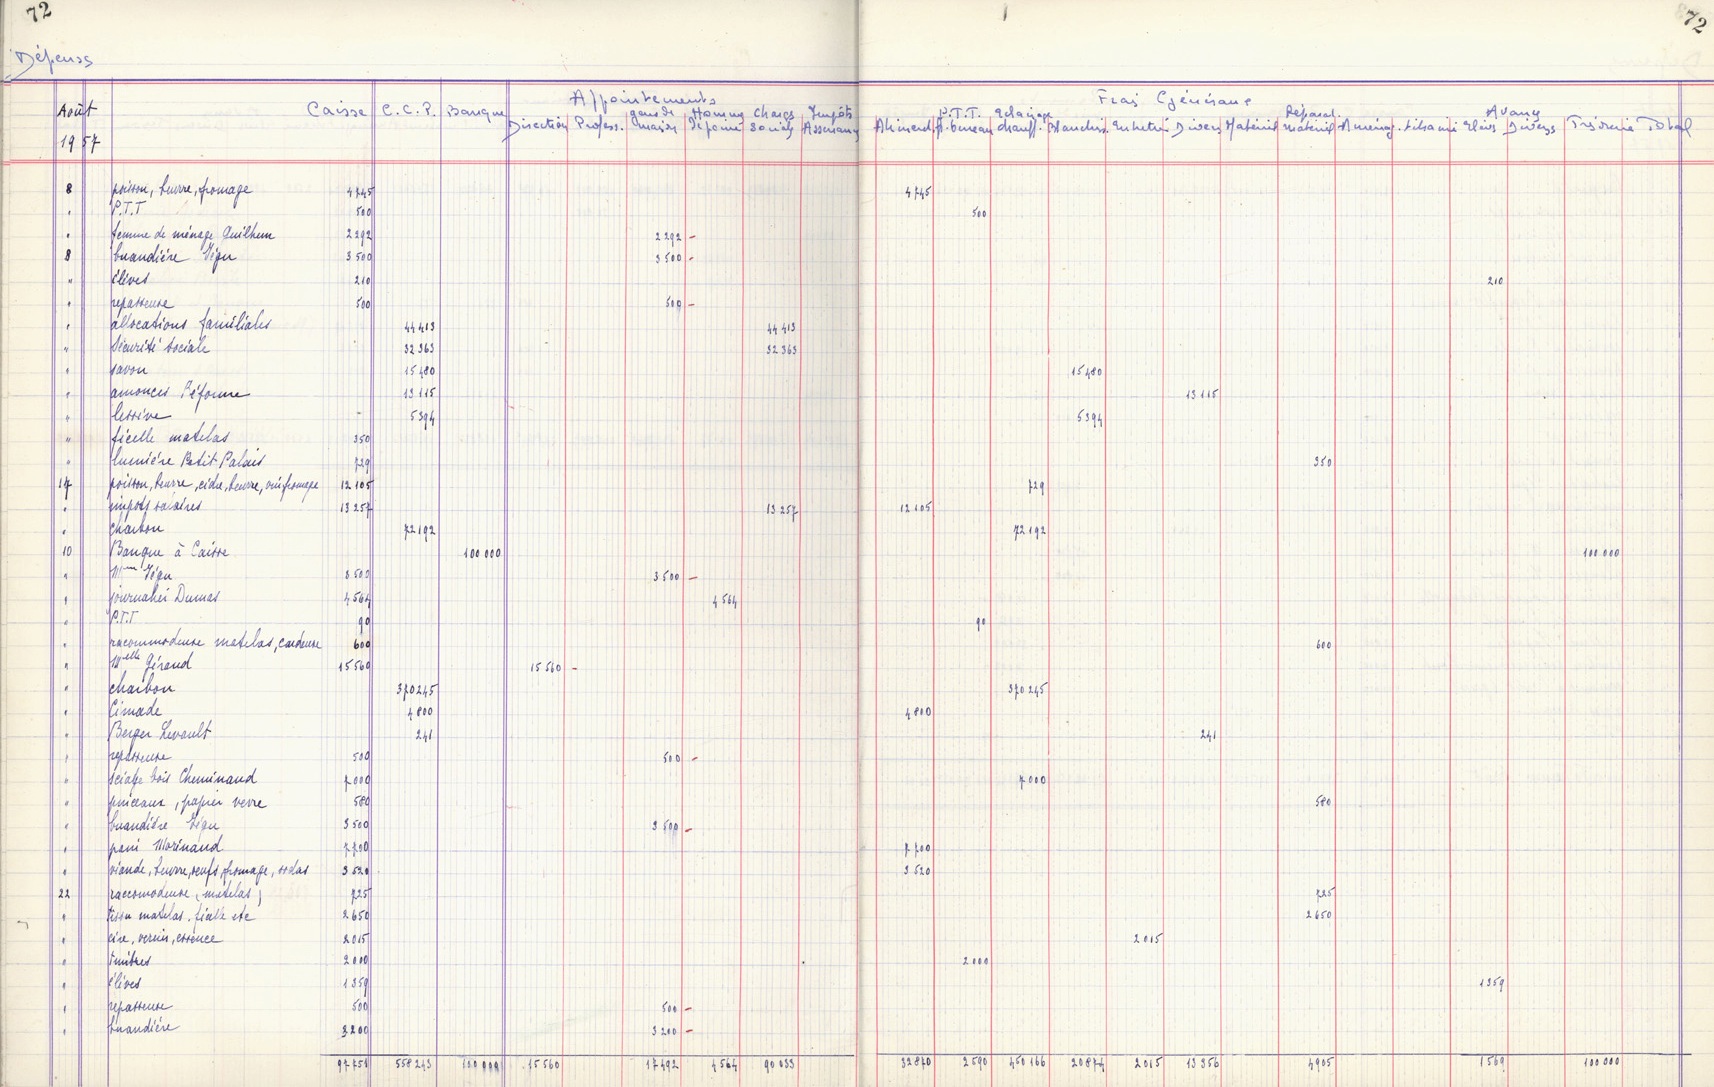 72
72
Dépenses
Août
1957
Caisse C.C.P. Banque
Appointements
Direction Profess.
Frais Généraux
P.T.T. éclairage
chauff. Blanchis. Entretien Divers Matériel
Réparat.
matériel
Avances
Élèves Divers
Trésorerie Total
8 poisson, beurre, fromage 4745 4745
" P.T.T 500 500
" femme de ménage Guilhem 2292 2292 -
8 buandière Végu 3500 3500 -
" élèves 210 210
" repasseuse 500 500 -
" allocations familiales 44413 44413
" Sécurité Sociale 32363 32363
" savon 15480 15480
" annonces Réforme 13115 13115
" lessive 5394 5394
" ficelle matelas 350
" lumière Petit Palais 729 350
14 poisson, beurre, cidre, beurre, vin, fromage 12105 729
" impots salaires 13257 13257 12105
" charbon 72192 72192
10 Banque à Caisse 100000 100000
" Mme Végu 3500 3500 -
" journalier Dumas 4564 4564
" P.T.T 90 90
" racommodeuse matelas, cardeuse 600 600
" Melle Géraud 15560 15560 -
" charbon 370245 370245
" Cimade 4800 4800
" Berger Levault 241 241
" repasseuse 500 500 -
" sciage bois Cheminaud 7000 7000
" pinceaux, papier verre 580 580
" buandière Végu 3500 3500 -
" pain Morinaud 7700 7700
" viande, beurre, oeufs, fromage, sodas 3520 3520
22 raccomodeuse (matelas) 725 725
" tissu matelas. ficelle etc 2650 2650
" cire, vernis, essence 2015 2015
" timbres 2000 2000
" élèves 1359 1359
" repasseuse 500 500 -
" buandière 3200 3200 -
97751 558243 100000 15560 17492 4564 90033 32870 2590 450166 20874 2015 13356 4905 1569 100000